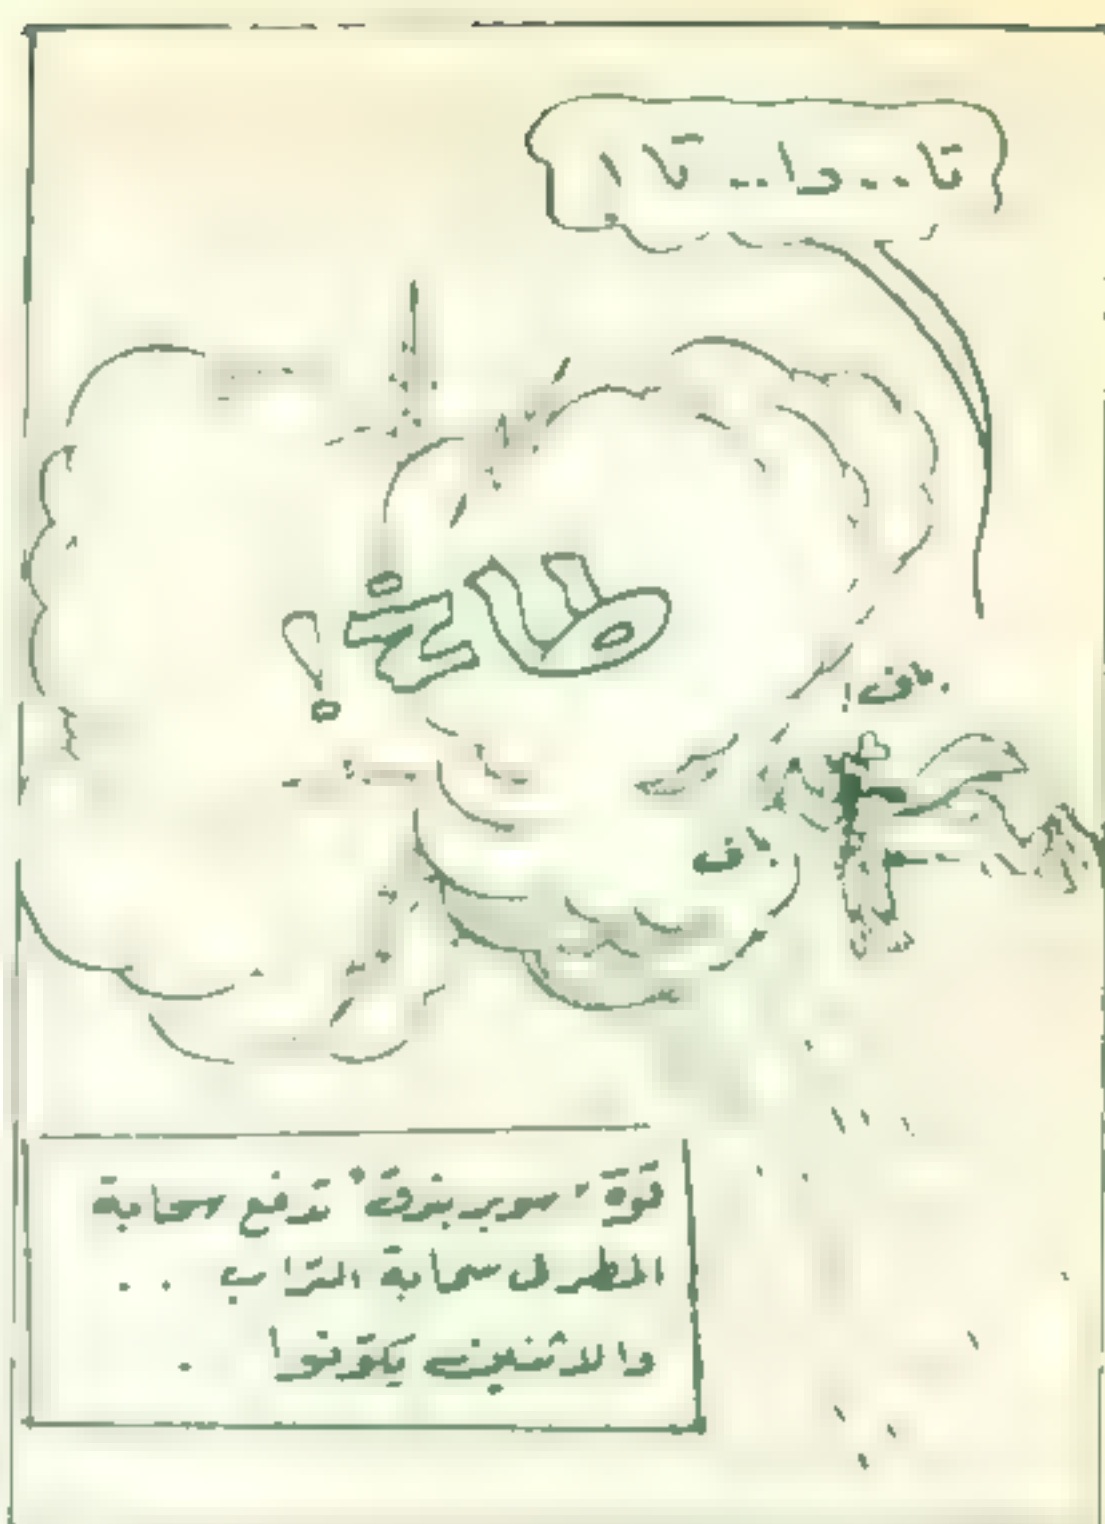 تا...دا.. تا ا
طاخ !
باف !
باف
قوة "سوبر بندق" تدفع سحابة
المطر لسحابة التراب ..
والاثنين يكونوا .